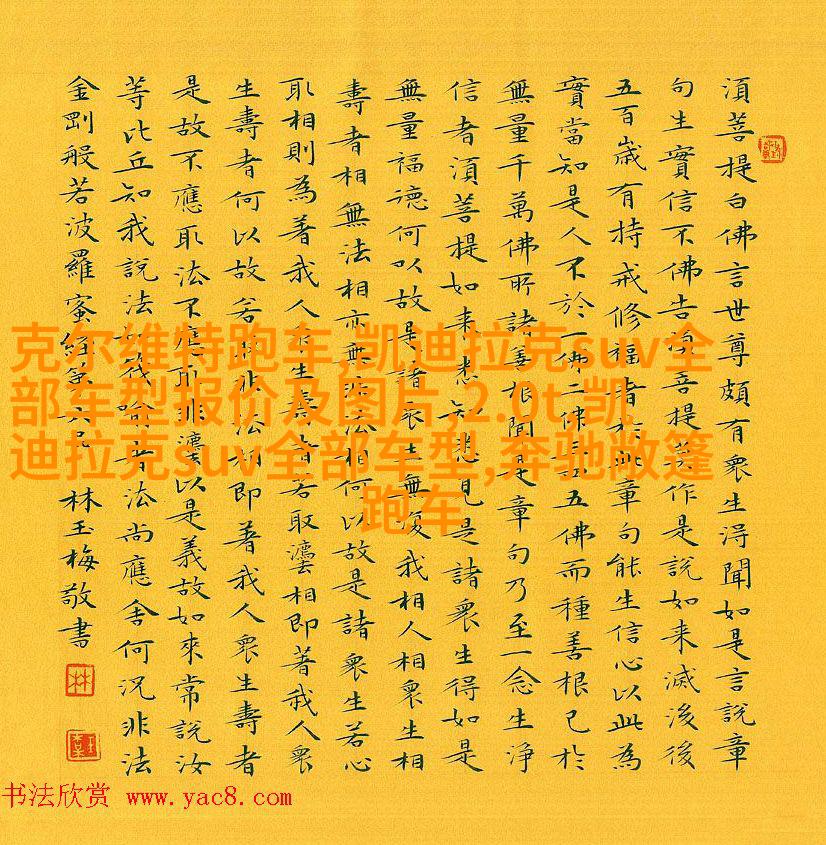 湏菩提白佛言世尊頗有衆生淂聞如是言說章
句生實信不佛告湏菩提莫作是說如来滅後後
五百歲有持戒修福者於此章句能生信心以此為
實當知是人不於一佛二佛三五佛而種善根已於
無量千萬佛所諸善根聞是章句乃至一念生淨
信者湏菩提如来悉知悉見是諸衆生得如是
無量福德何以故是諸衆生無復我相人相衆生相
壽者相無法相亦無非法相何以故是諸衆生若心
取相則為著我人衆生壽者若取灋相即著我人衆
生壽者何以故若取非法相即著我人衆生壽者
是故不應取法不應取非灋以是義故如來常說汝
等比丘知我說法如筏喻者法尚應舍何況非法
金剛般若波羅蜜經第六品
林玉梅敬書
林
克尔维特跑车,凯迪拉克suv全
部车型报价及图片,2.0t 凯
迪拉克suv全部车型,奔驰敞篷
跑车
书法欣赏 www.yac8.com